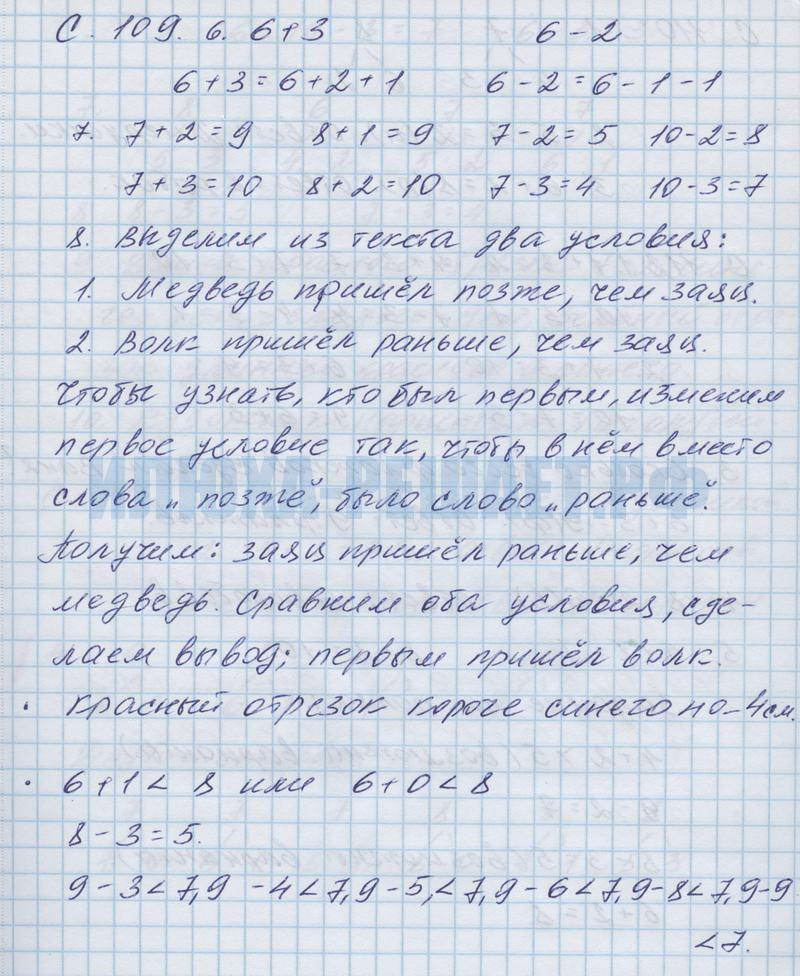 С. 109. 6. 6+3 6-2
6+3=6+2+1 6-2=6-1-1
7. 7+2=9 8+1=9 7-2=5 10-2=8
7+3=10 8+2=10 7-3=4 10-3=7
8. Выделим из текста два условия:
1. Медведь пришёл позже, чем заяц.
2. Волк пришёл раньше, чем заяц.
Чтобы узнать, кто был первым, изменим
первое условие так, чтобы в нём вместо
слова „позже", было слово „раньше".
Получим: заяц пришёл раньше, чем
медведь. Сравним оба условия, сде-
лаем вывод; первым пришёл волк.
. Красный отрезок короче синего но-4см.
. 6+1<8 или 6+0<8
8-3=5.
9-3<7,9-4<7,9-5,<7,9-6<7,9-8<7,9-9
<7.